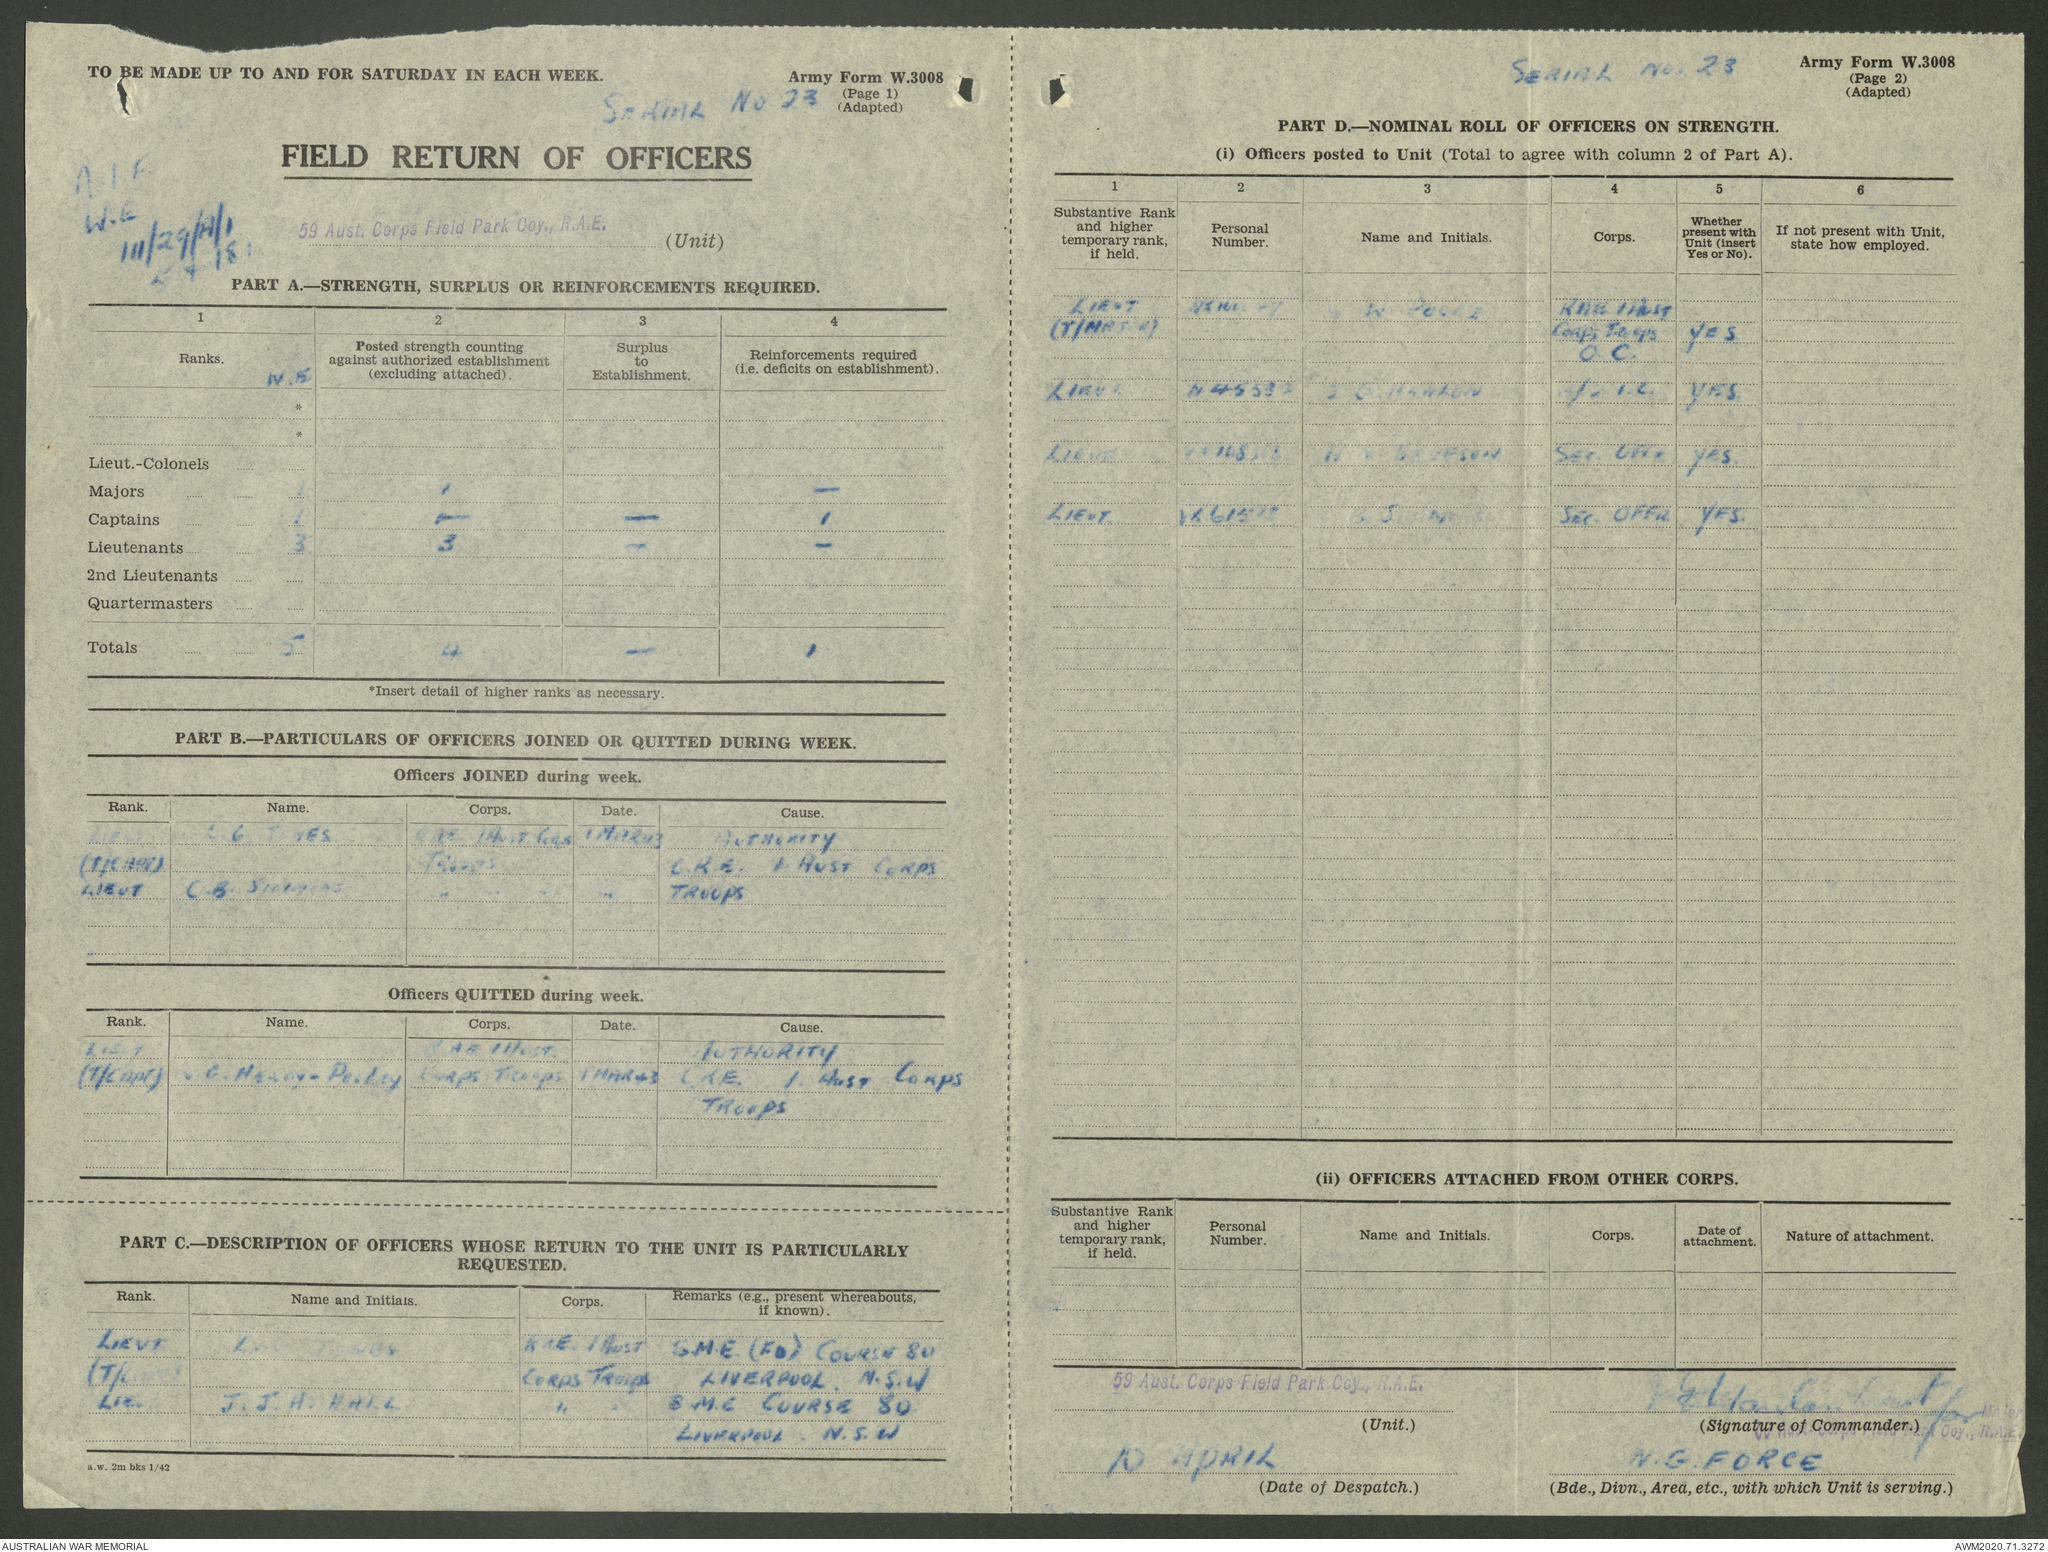 TO BE MADE UP TO AND FOR SATURDAY IN EACH WEEK.
Army Form W.3008
(Page 1)
(Adapted)
SERIAL No 23
FIELD RETURN OF OFFICERS
A.I.F
W.E
III/29/A/1
59 Aust. Corps Field Park Coy., R.A.E.
(Unit)
PART A.—STRENGTH, SURPLUS OR REINFORCEMENTS REQUIRED.
1 2 3 4
Ranks. W.E
Posted strength counting against authorized establishment (excluding attached).
Surplus to Establishment.
Reinforcements required (i.e. deficits on establishment).
*
*
Lieut.-Colonels
Majors 1 1 —
Captains 1 — — 1
Lieutenants 3 3 — —
2nd Lieutenants
Quartermasters
Totals 5 4 — 1
*Insert detail of higher ranks as necessary.
PART B.—PARTICULARS OF OFFICERS JOINED OR QUITTED DURING WEEK.
Officers JOINED during week.
Rank. Name. Corps. Date. Cause.
RAE 1 AUST CORPS 1 MAR 43 AUTHORITY
(T/CAPT) TROOPS C.R.E. 1 AUST CORPS
LIEUT C.B. SIMMONS " " " TROOPS
Officers QUITTED during week.
Rank. Name. Corps. Date. Cause.
LIEUT RAE 1 AUST. AUTHORITY
(T/CAPT) CORPS TROOPS 1 MAR 43 C.R.E. 1 AUST CORPS
TROOPS
PART C.—DESCRIPTION OF OFFICERS WHOSE RETURN TO THE UNIT IS PARTICULARLY
REQUESTED.
Rank. Name and Initials. Corps. Remarks (e.g., present whereabouts, if known).
LIEUT RAE 1 AUST S.M.E. (FD) COURSE 80
CORPS TROOPS LIVERPOOL. N.S.W
LIE. J.J.H. HALL " " S.M.E COURSE 80
LIVERPOOL. N.S.W
a.w. 2m bks 1/42
SERIAL No. 23
Army Form W.3008
(Page 2)
(Adapted)
PART D.—NOMINAL ROLL OF OFFICERS ON STRENGTH.
(i) Officers posted to Unit (Total to agree with column 2 of Part A).
1 2 3 4 5 6
Substantive Rank and higher temporary rank, if held.
Personal Number.
Name and Initials.
Corps.
Whether present with Unit (insert Yes or No).
If not present with Unit, state how employed.
LIEUT RAE 1 AUST
(T/MAJOR) CORPS TROOPS YES
O.C.
LIEUT. YES.
LIEUT SEC. OFFR YES.
LIEUT. SEC. OFFR YES.
(ii) OFFICERS ATTACHED FROM OTHER CORPS.
Substantive Rank and higher temporary rank, if held.
Personal Number.
Name and Initials.
Corps.
Date of attachment.
Nature of attachment.
59 Aust. Corps Field Park Coy., R.A.E.
(Unit.)
for Major
(Signature of Commander.)
Coy., R.A.E.
10 APRIL
(Date of Despatch.)
N.G. FORCE
(Bde., Divn., Area, etc., with which Unit is serving.)
AUSTRALIAN WAR MEMORIAL
AWM2020.71.3272